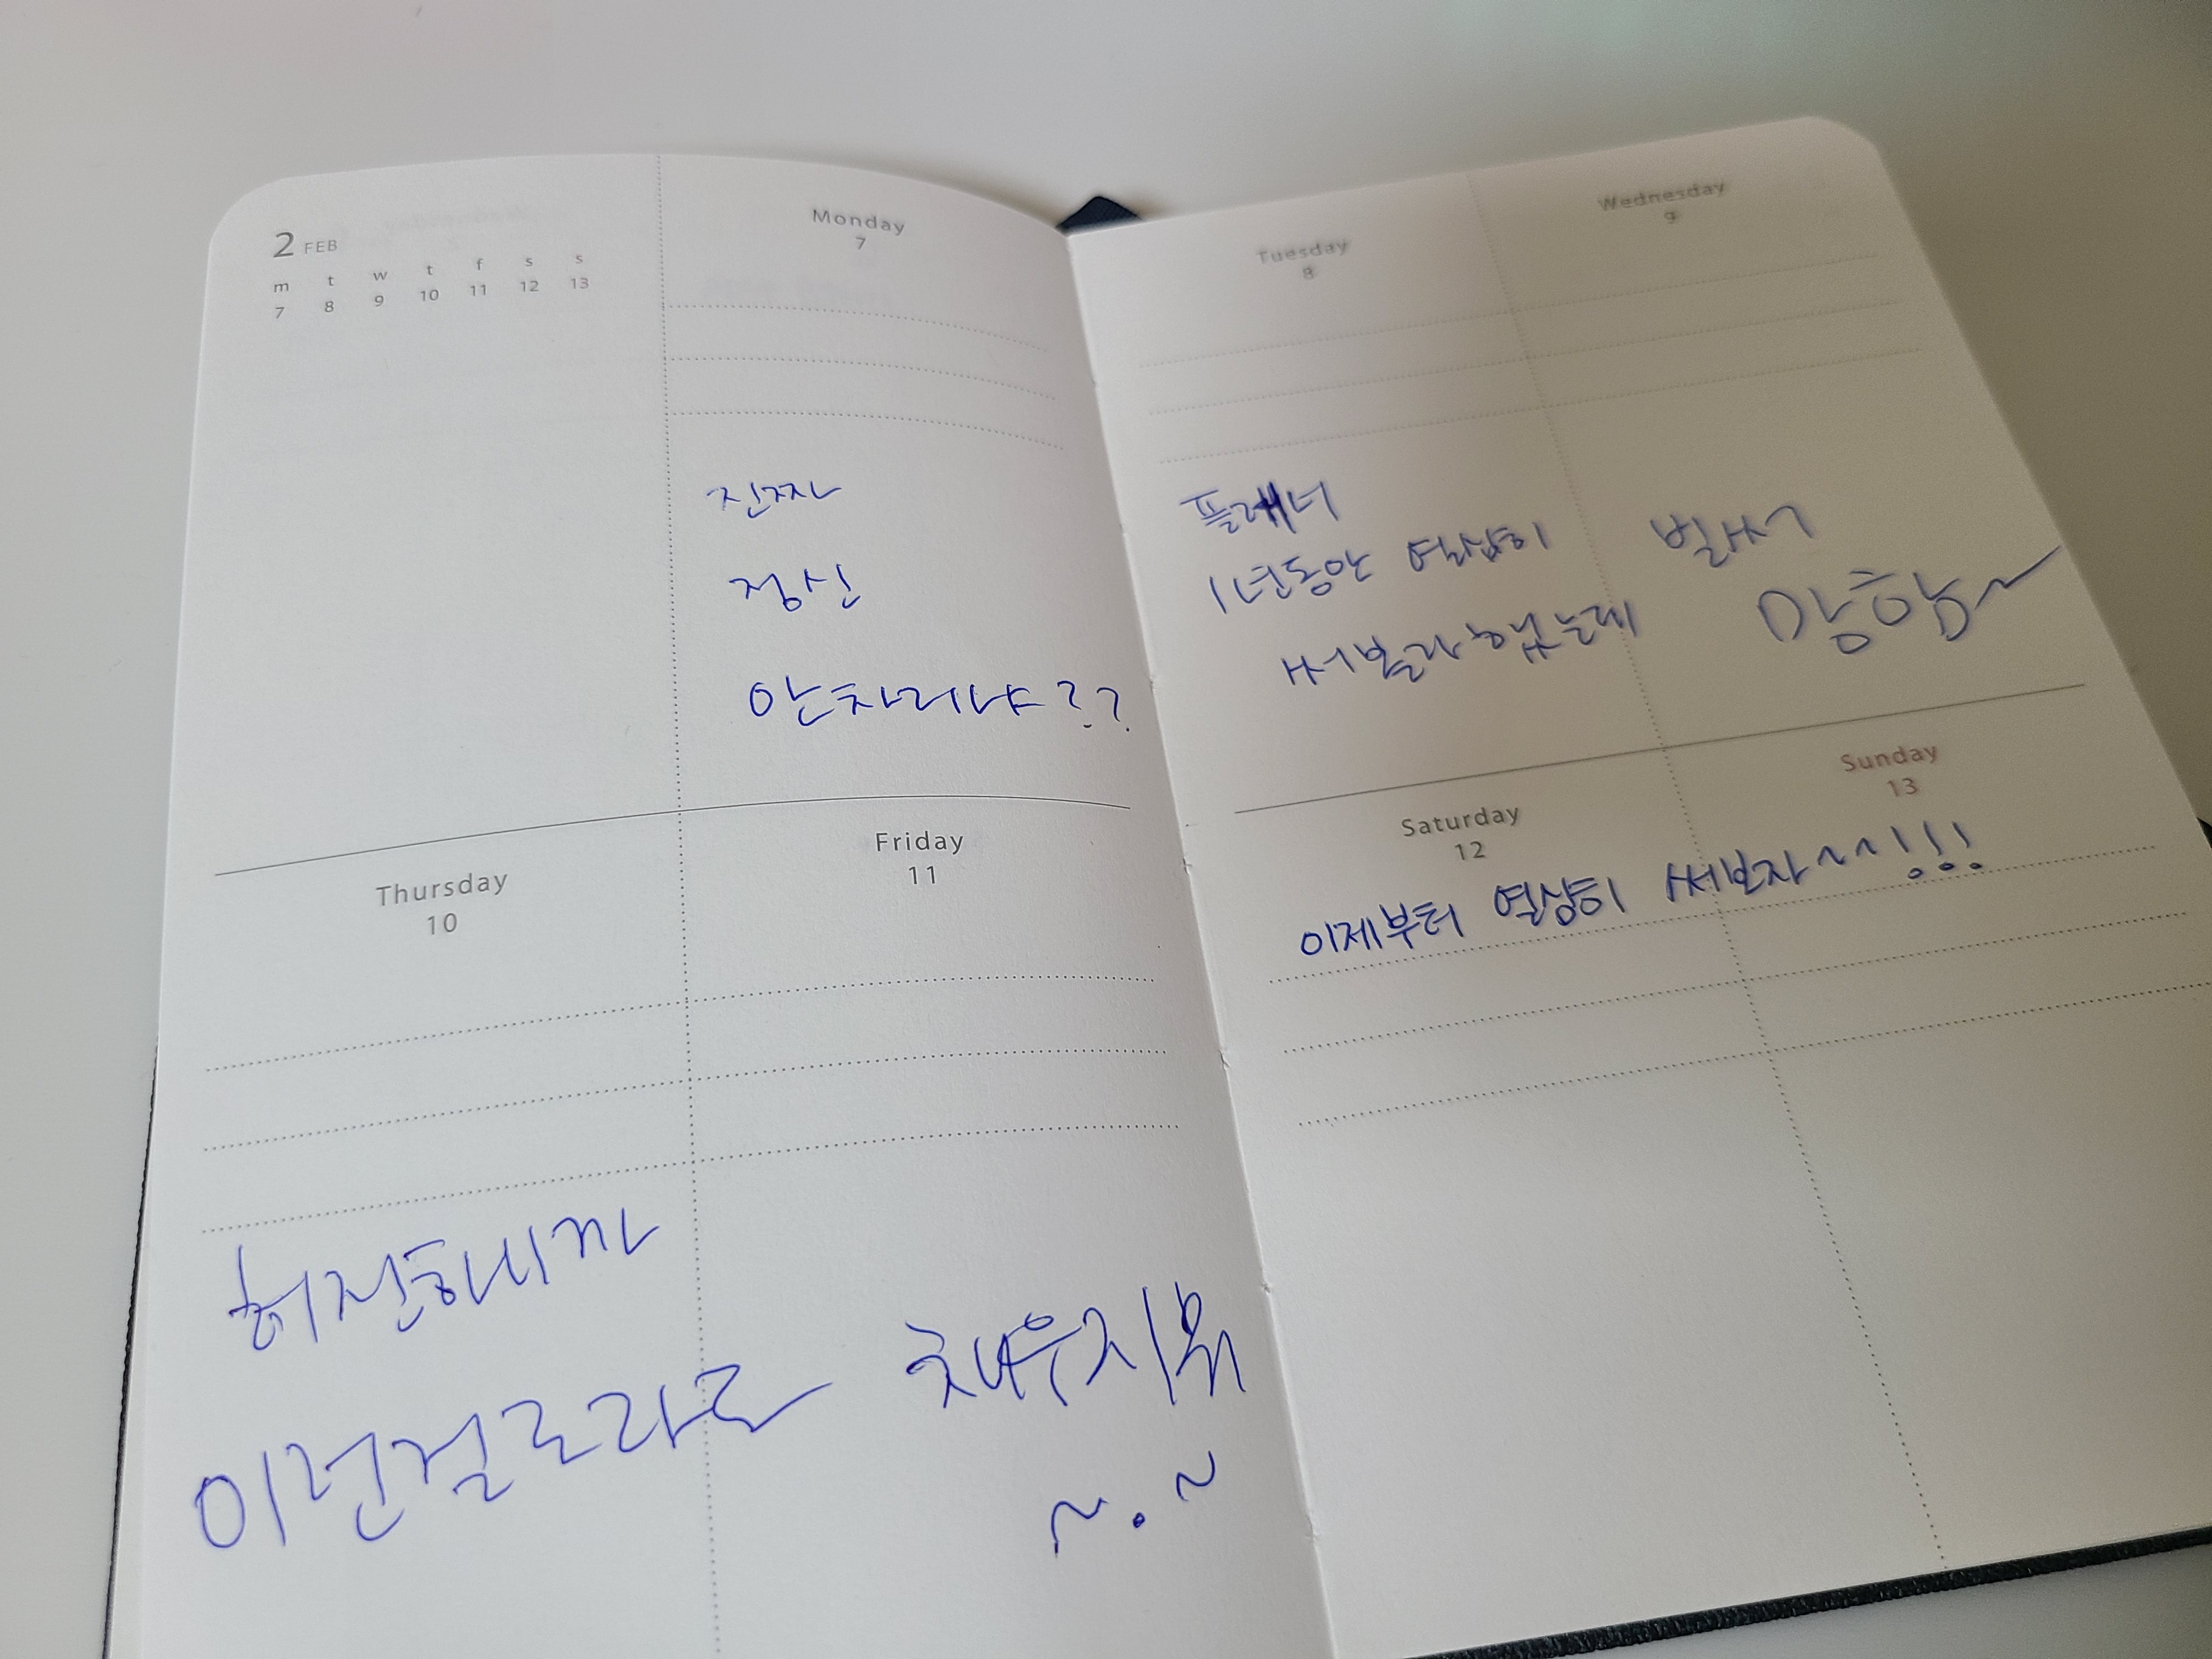 2 FEB
m t w t f s s
7 8 9 10 11 12 13
Monday
7
진짜
정신
안차리냐??
Thursday
10
허전하니까
이런걸로라도
Friday
11
채우지뭐
~.~
Tuesday
8
플래너
1년동안 열심히
써볼라했는데
Wednesday
9
벌써
망함~
Saturday
12
Sunday
13
이제부터 열심히 써보자~~!!!